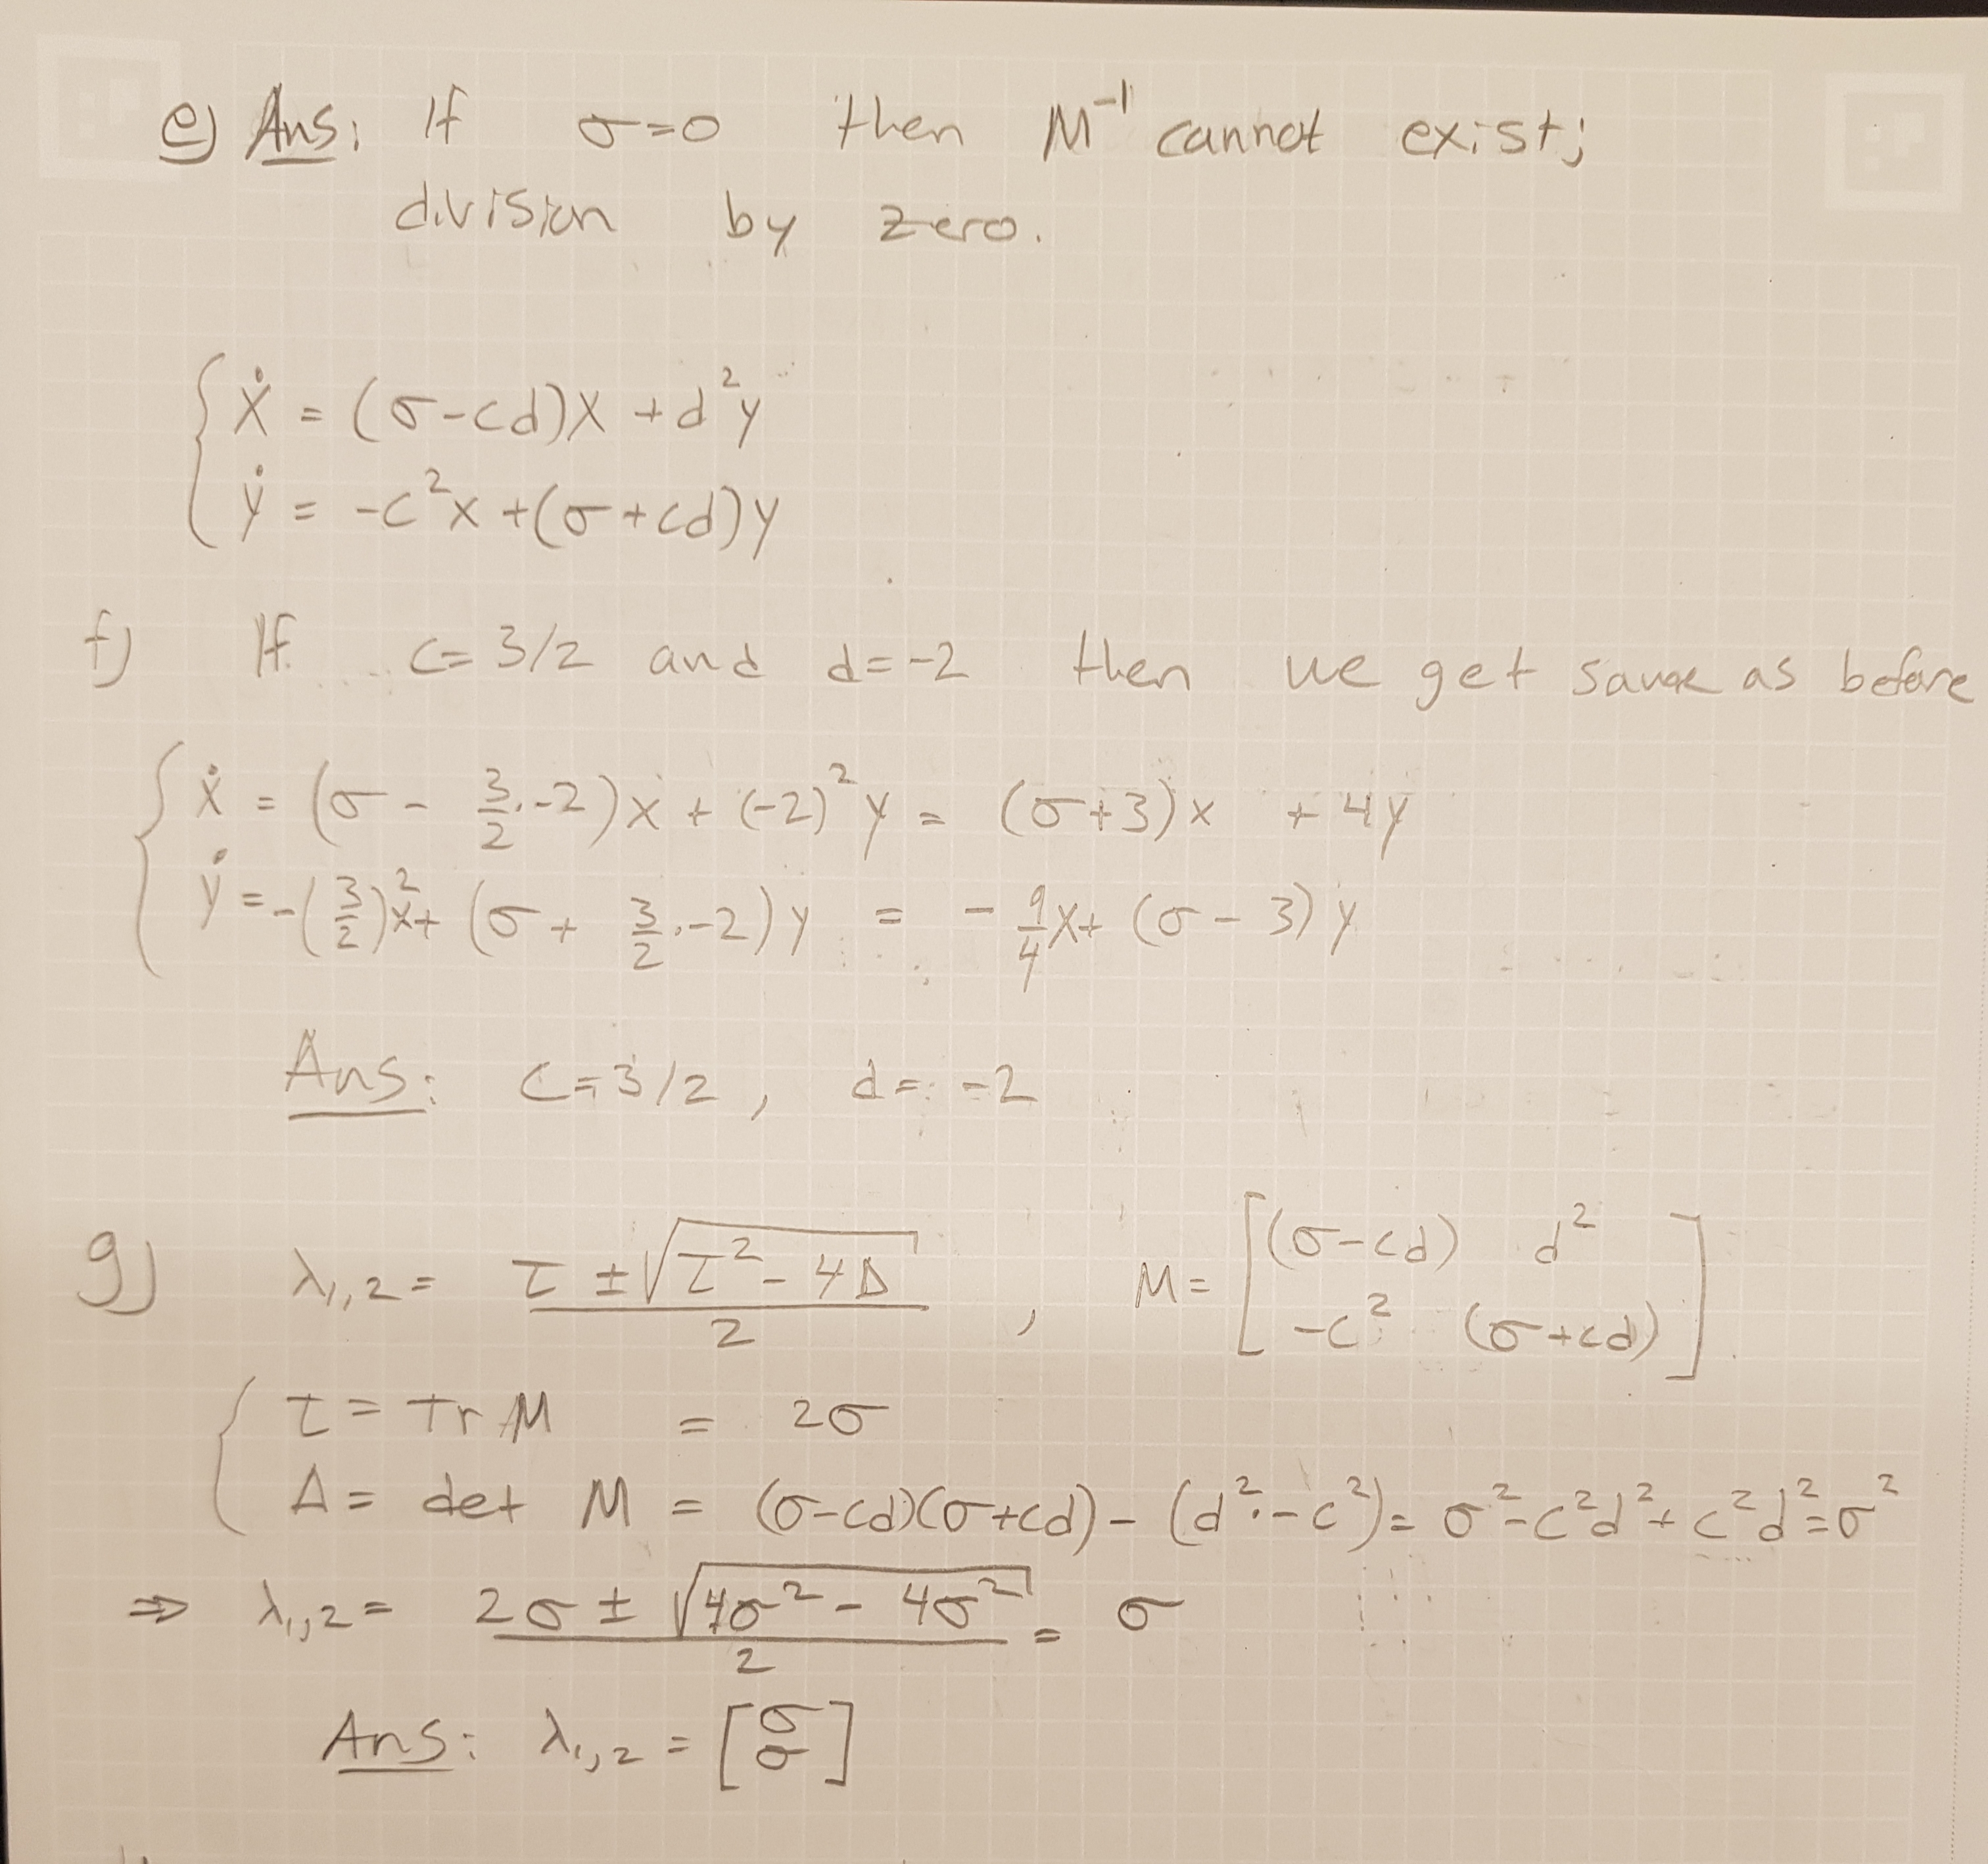 e) Ans: If σ=0 then M⁻¹ cannot exist;
division by zero.
{ ẋ = (σ-cd)x + d²y
ẏ = -c²x + (σ+cd)y
f) If c=3/2 and d=-2 then we get same as before
{ ẋ = (σ - 3/2·-2)x + (-2)²y = (σ+3)x + 4y
ẏ = -(3/2)²x + (σ + 3/2·-2)y = -9/4x + (σ-3)y
Ans: c=3/2, d=-2
g) λ₁,₂ = (τ ± √(τ² - 4Δ))/2 , M = [(σ-cd) d²
-c² (σ+cd)]
{ τ = Tr M = 2σ
Δ = det M = (σ-cd)(σ+cd) - (d²·-c²) = σ²-c²d²+c²d²=σ²
⇒ λ₁,₂ = (2σ ± √(4σ² - 4σ²))/2 = σ
Ans: λ₁,₂ = [σ
σ]